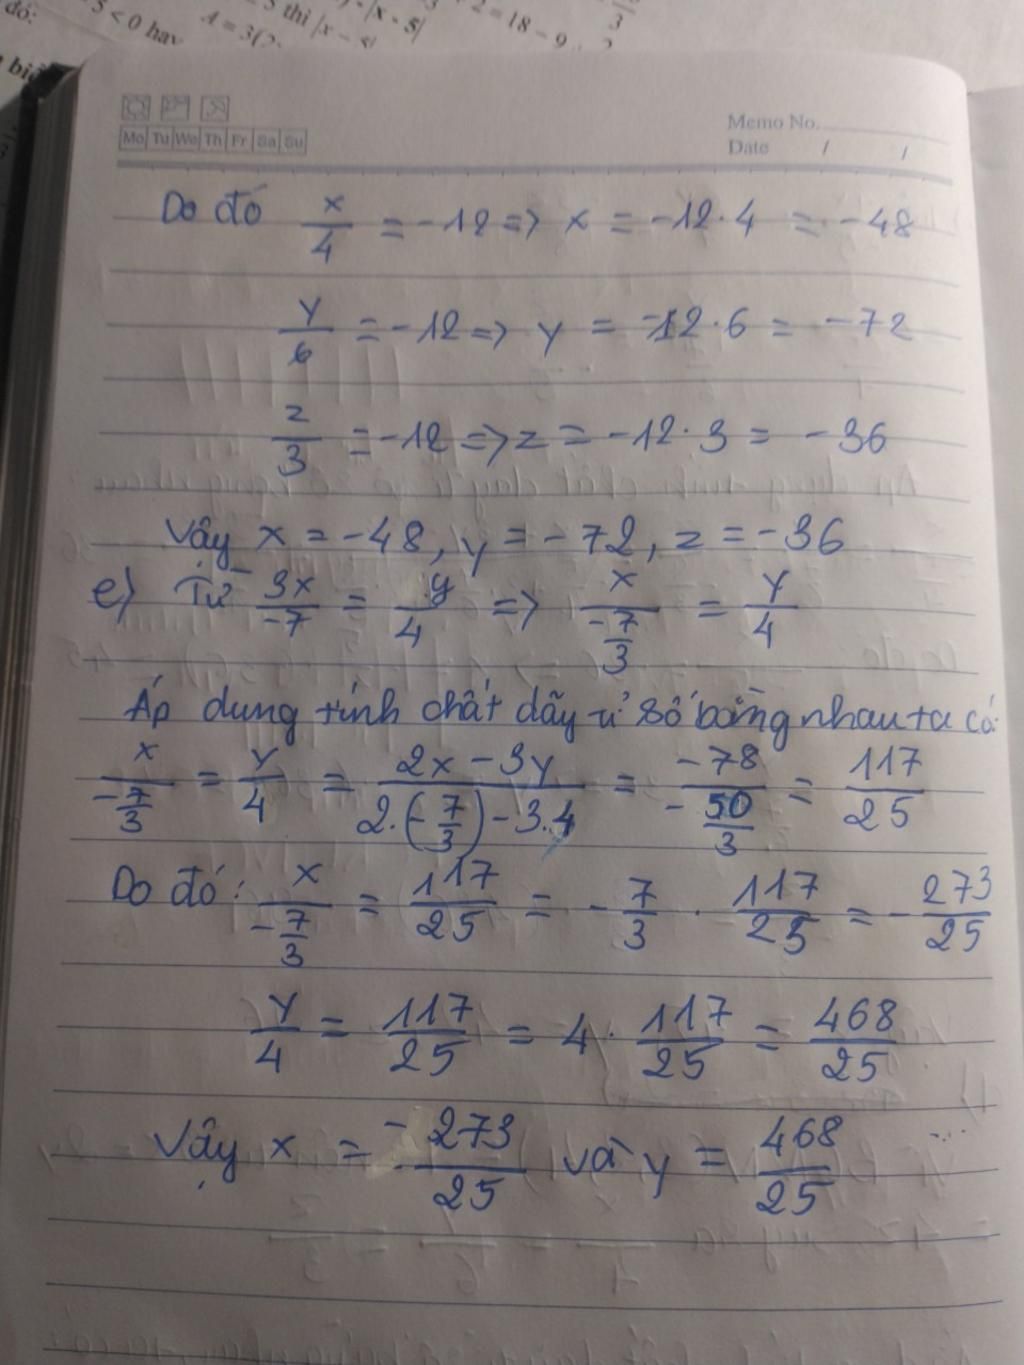 đó:
5 < 0 hay
A = 3(2
5 thì |x - 5|
- |x - 5|
2 = 18 - 9
3
Mo Tu We Th Fr Sa Su
Memo No.
Date / /
Do đó x/4 = -12 => x = -12.4 = -48
y/6 = -12 => y = -12.6 = -72
z/3 = -12 => z = -12.3 = -36
Vậy x = -48, y = -72, z = -36
e) Từ 3x/-7 = y/4 => x/(-7/3) = y/4
Áp dụng tính chất dãy tỉ số bằng nhau ta có:
x/(-7/3) = y/4 = (2x - 3y)/(2.(-7/3) - 3.4) = -78/(-50/3) = 117/25
Do đó: x/(-7/3) = 117/25 = -7/3 . 117/25 = -273/25
y/4 = 117/25 = 4. 117/25 = 468/25
Vậy x = -273/25 và y = 468/25